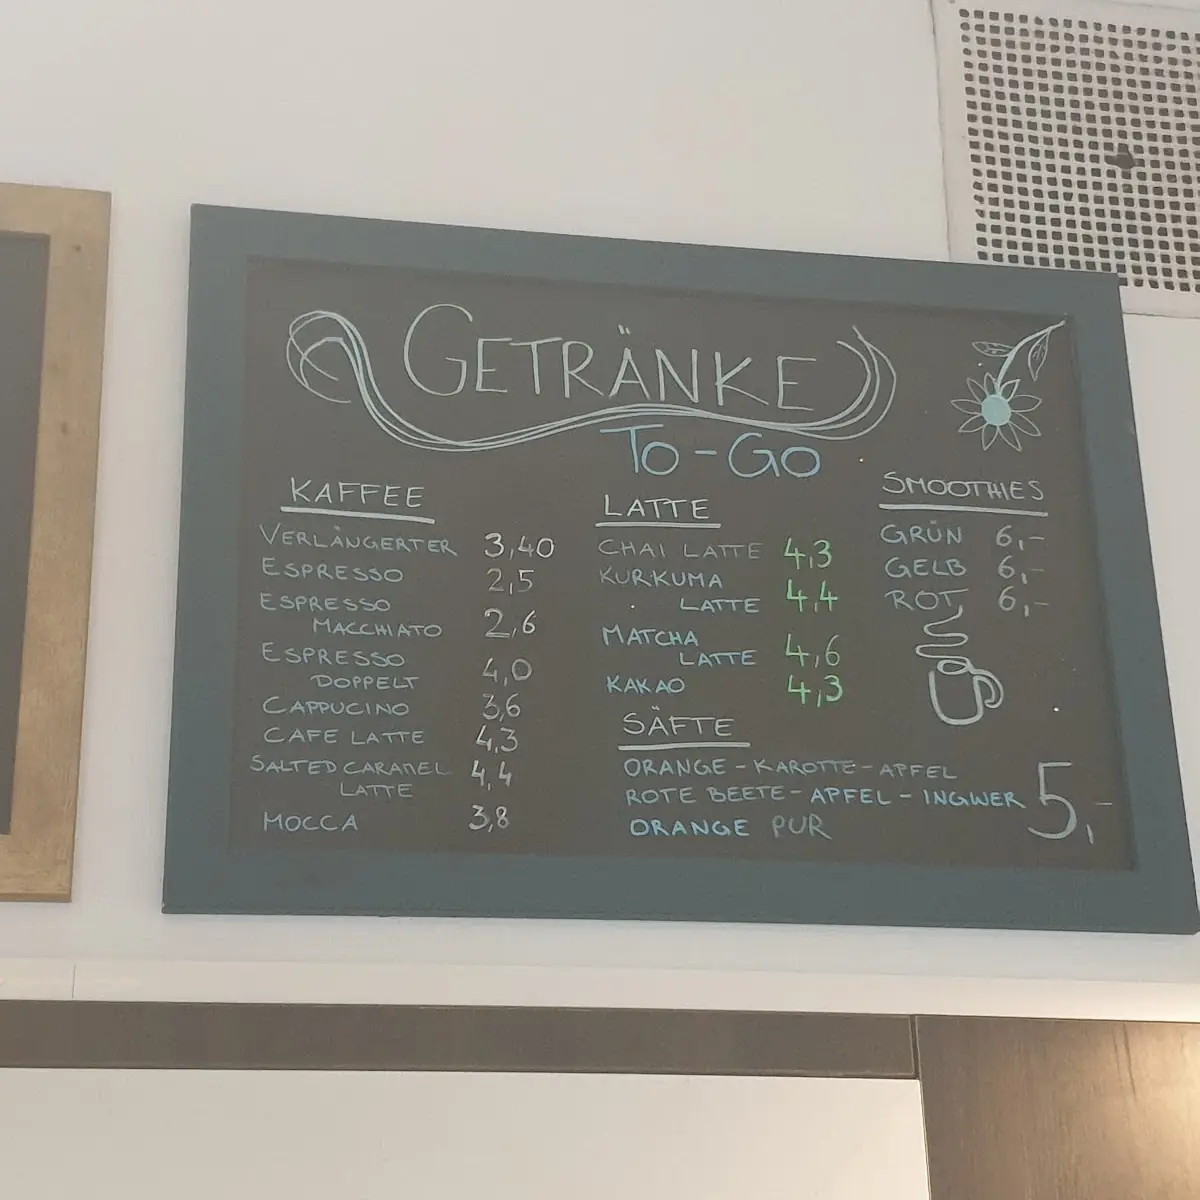 GETRÄNKE
TO-GO
KAFFEE
VERLÄNGERTER 3,40
ESPRESSO 2,5
ESPRESSO
MACCHIATO 2,6
ESPRESSO
DOPPELT 4,0
CAPPUCINO 3,6
CAFE LATTE 4,3
SALTED CARAMEL
LATTE 4,4
MOCCA 3,8
LATTE
CHAI LATTE 4,3
KURKUMA
LATTE 4,4
MATCHA
LATTE 4,6
KAKAO 4,3
SÄFTE
ORANGE-KAROTTE-APFEL
ROTE BEETE-APFEL-INGWER 5,-
ORANGE PUR
SMOOTHIES
GRÜN 6,-
GELB 6,-
ROT 6,-